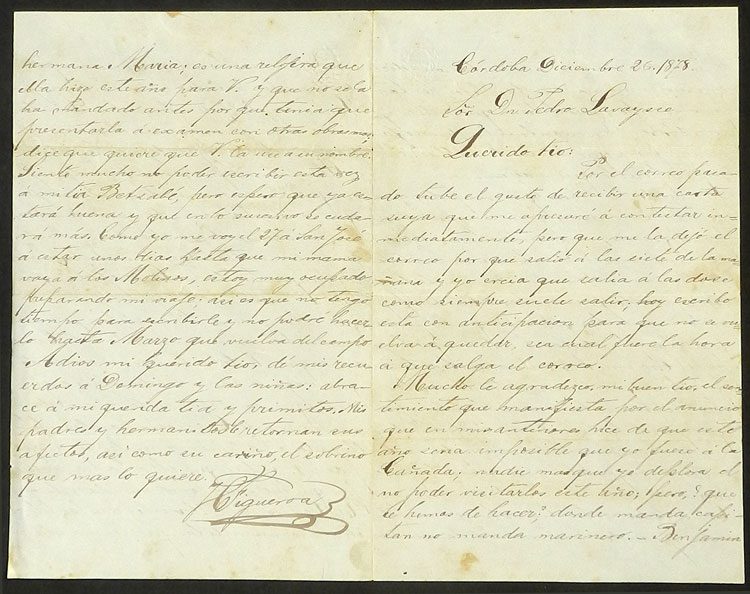 Córdoba Diciembre 26. 1878.
Sõr Dn Pedro Lavaysse
Querido tio:
Por el correo pasa-
do tube el gusto de recibir una carta
suya que me apresuré á contestar in-
mediatamente, pero que me la dejó el
correo por que salió á las siete de la ma-
ñana y yo creia que salia á las doce
como siempre suele salir; hoy escribo
esta con anticipacion para que no se vu-
elva á quedar, sea cual fuere la hora
á que salga el correo.
Mucho le agradezco, mi buen tio, el sen-
timiento que manifiesta por el anuncio
que en mis anteriores hice de que este
año seria imposible que yo fuese á la
Cañada; nadie mas que yo deplora el
no poder visitarlos este año; pero, ¿que
le hemos de hacer? donde manda capi-
tan no manda marinero. — Benjamin
hermana Maria; es una relojera que
ella hizo este año para V. y que no se la
ha mandado antes por que tenia que
presentarla á examen con otras obras mas,
dice que quiere que V. la use a su nombre.
Siento mucho no poder escribir esta vez
á mi tia Betsabé, pero espero que ya es-
tará buena y que en lo sucesivo se cuida-
rá más. Como yo me voy el 27 á San José
á estar unos dias hasta que mi mama
vaya a los Molinos, estoy muy ocupado
preparando mi viaje; asi es que no tengo
tiempo para escribirle y no podré hacer
lo hasta Marzo que vuelva del campo
Adios mi querido tio, dé mis recu-
erdos á Domingo y las niñas: abra-
ce á mi querida tia y primitos. Mis
padres y hermanitos le retornan sus
afectos, asi como su cariño, el sobrino
que mas lo quiere.
Figueroa